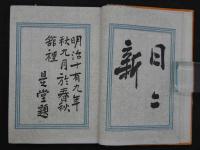 日々
新
明治十有九年
秋九月於春秋
館裡
是堂題